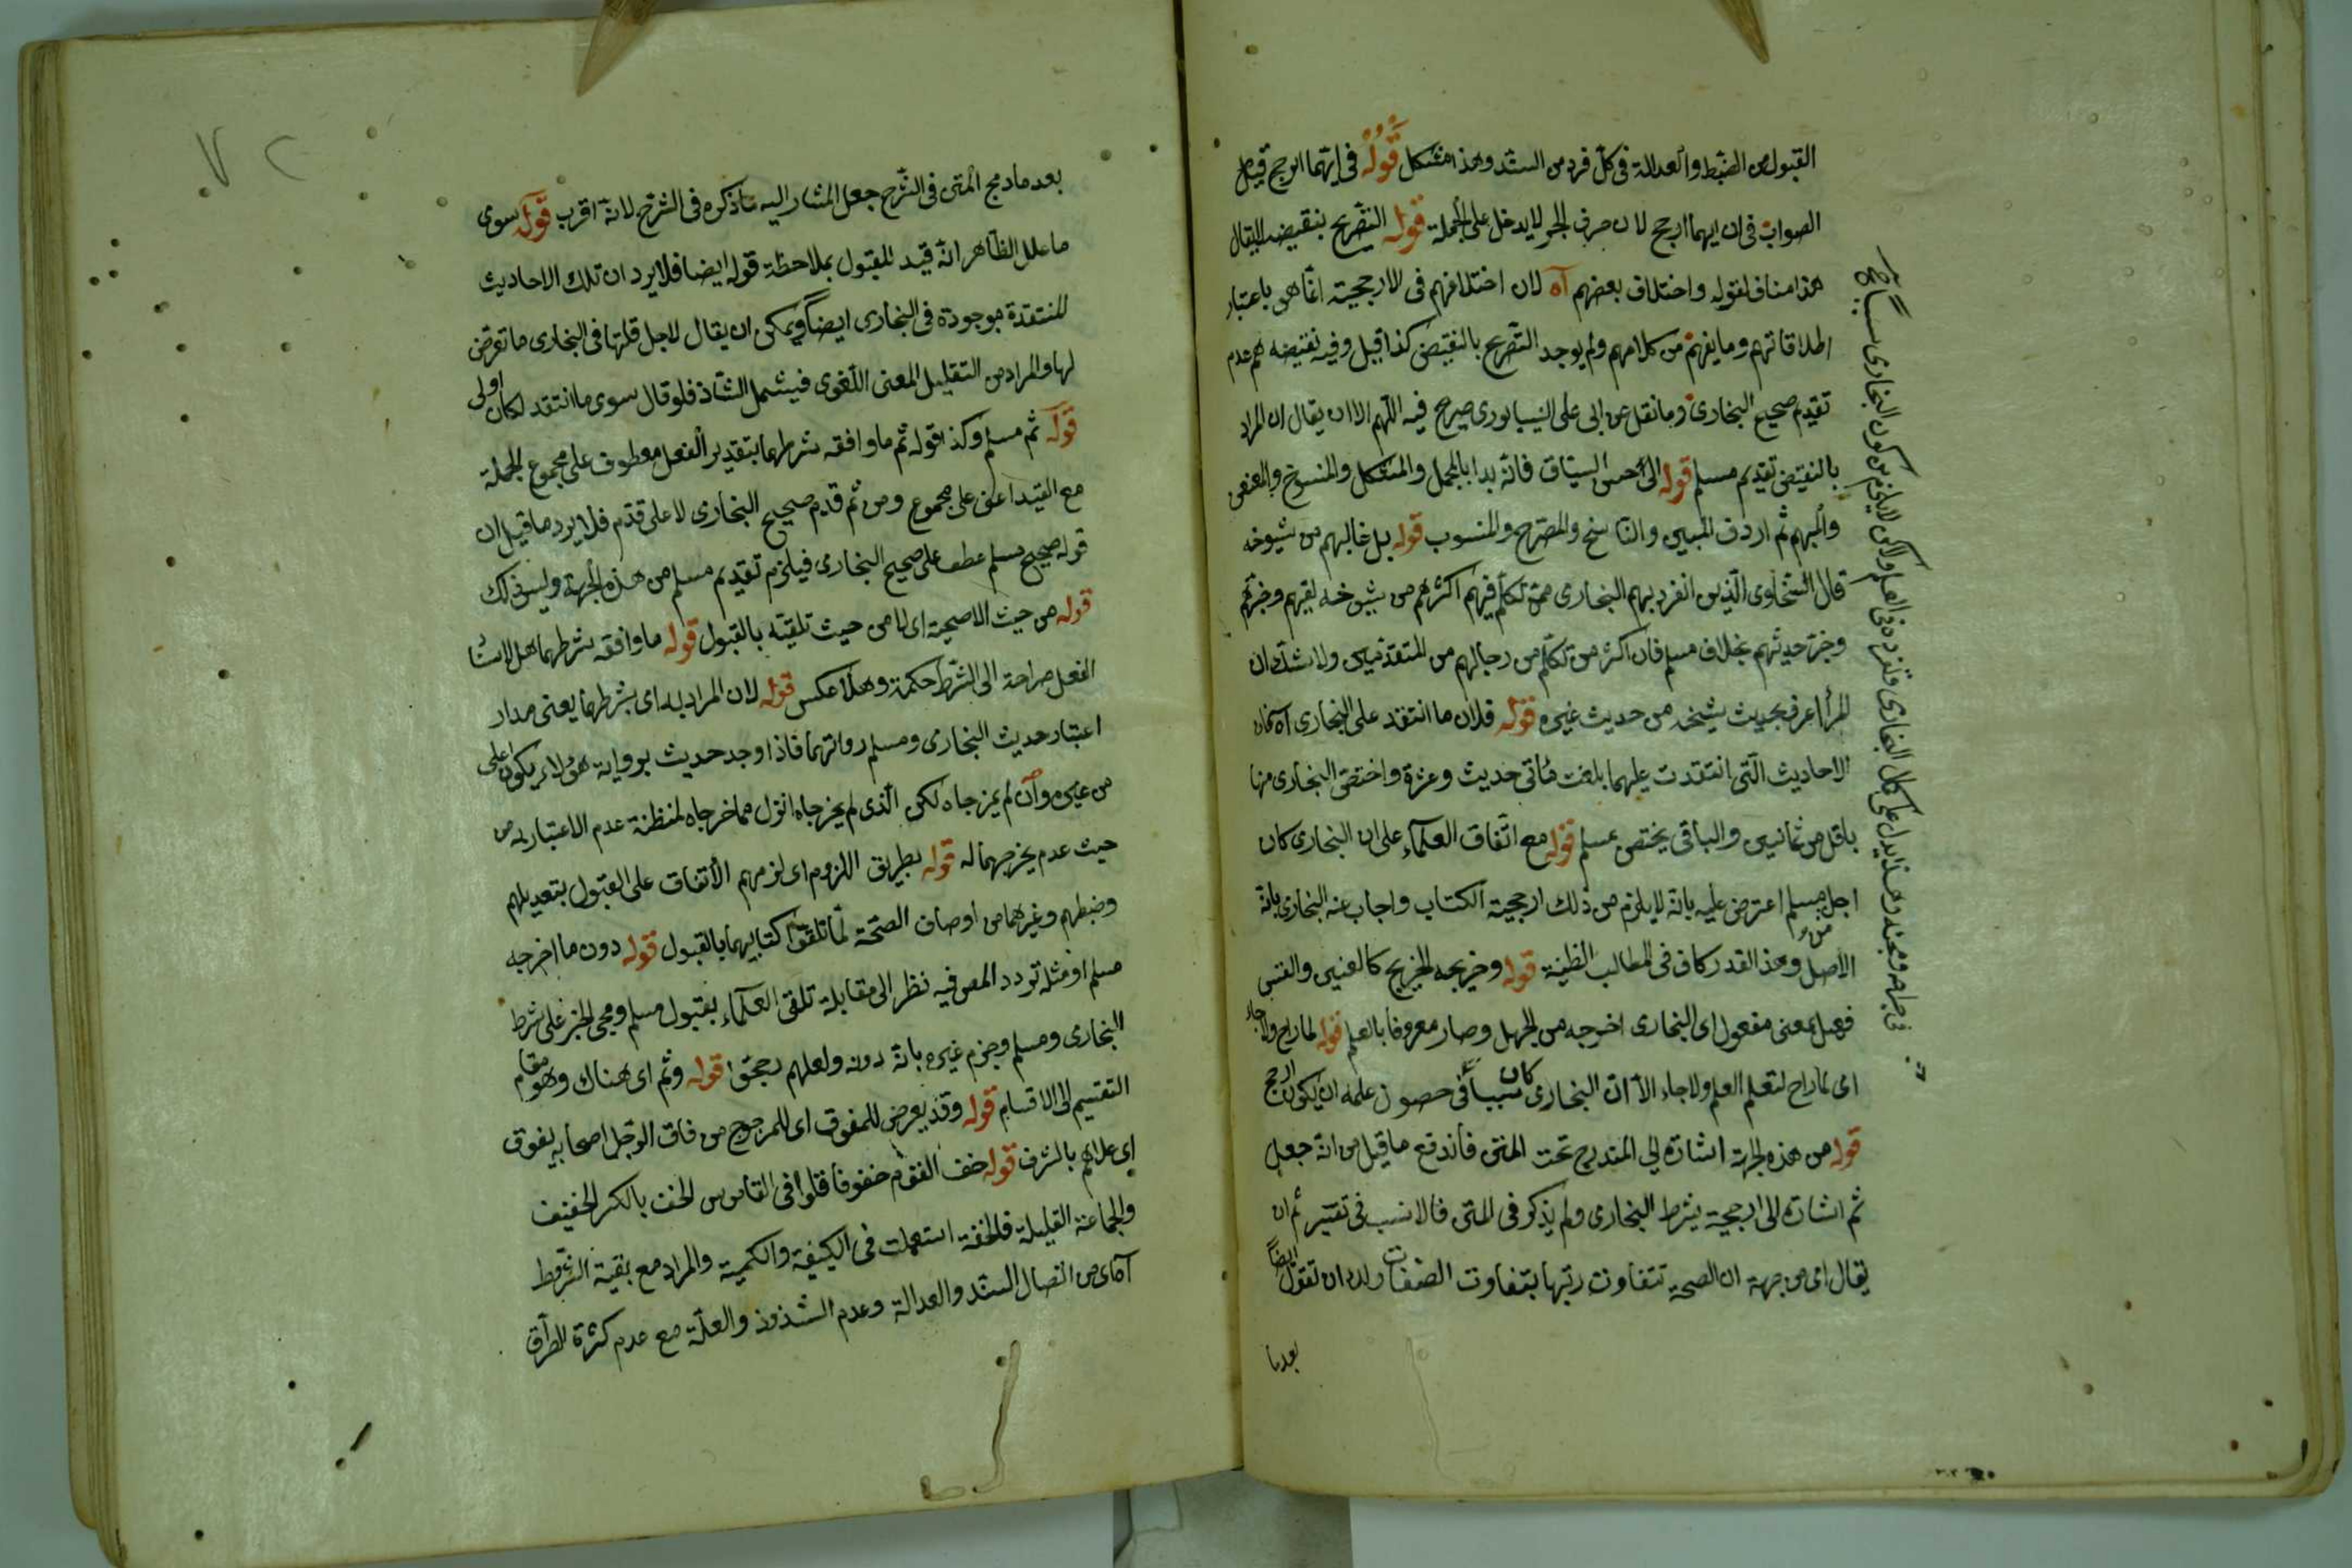 القبول من الضبط والعدالة فى كل فرد من السند وهذا مشكل قوله فى ايهما ارجح قيل
الصواب فى ان ايهما ارجح لان حرف الجر لا يدخل على الجملة قوله التصريح بنقيضه لا يقال
هذا مناف لقوله واختلاف بعضهم آه لان اختلافهم فى الارجحية انما هى باعتبار
اطلاقاتهم وما يفهم من كلامهم ولم يوجد التصريح بالنقيض كذا قيل وفيه نقيضه هو عدم
تقديم صحيح البخارى وما نقل عن ابى على النيسابورى صريح فيه اللهم الا ان يقال ان المراد
بالنقيض تقديم مسلم قوله الى حسن السياق فانه بدا بالمجمل والمشكل والمنسوخ والمعنعن
والمبهم ثم اردف المبين والناسخ والمصرح والمنسوب قوله بل غالبهم من شيوخه
قال السخاوى الذين انفرد بهم البخارى ممن تكلم فيهم اكثرهم من شيوخه لقيهم وخبرهم
وخبر حديثهم بخلاف مسلم فان اكثر من تكلم من رجالهم من المتقدمين ولا شك ان
المرأ اعرف بحديث شيخه من حديث غيره قوله فلان ما انتقد على البخارى آه فان
الاحاديث التى انتقدت عليهما بلغت مأتى حديث وعشرة واختص البخارى منها
باقل من ثمانين والباقى يختص بمسلم قوله مع اتفاق العلمآء على ان البخارى كان
اجل من مسلم اعترض عليه بانه لا يلزم من ذلك ارجحية الكتاب واجاب عنه البخارى بانه
الاصل وهذا القدر كاف فى المطالب الظنية قوله وخريجه الخريج كالعنين
فعيل بمعنى مفعول اى البخارى اخرجه من الجهل وصار معروفا بالعلم قوله لما راح ولا جاء
اى لما راح لتعلم العلم ولا جاء الا ان البخارى كان سببا فى حصول علمه ان يكون ارجح
قوله من هذه الجهة اشارة الى المندرج تحت المتن فاندفع ما قيل من انه جعل
ثم اشارة الى ارجحية شرط البخارى ولم يذكر فى المتن فالانسب فى تفسير ثم ان
يقال اى من جهة ان الصحة تتفاوت رتبها بتفاوت الصفات ولك ان تقول ايضا
بعد ما
بعد ما دمج المتن فى الشرح جعل المشار اليه ما ذكره فى الشرح لانه اقرب قوله سوى
ما علل الظاهر انه قيد للمقبول بملاحظة قوله ايضا فلا يرد ان تلك الاحاديث
المنتقدة موجودة فى البخارى ايضا ويمكن ان يقال لاجل قلتها فى البخارى ما تعرض
لها والمراد من التقليل المعنى اللغوى فيشمل الشاذ فلو قال سوى ما انتقد لكان اولى
قوله ثم مسلم وكذا قوله ثم ما وافقه شرطهما بتقدير الفعل معطوف على مجموع الجملة
مع القيد اعنى على مجموع ومن ثم قدم صحيح البخارى لا على قدم فلا يرد ما قيل ان
قوله صحيح مسلم عطف على صحيح البخارى فيلزم تقديم مسلم من هذه الجهة وليس كذلك
قوله من حيث الاصحية اى لا من حيث تلقيه بالقبول قوله ما وافقه شرطهما
الفعل صراحة الى الشرط حكمة وهلا عكس قوله لان المراد به اى بشرطهما يعنى مدار
اعتبار حديث البخارى ومسلم رواتهما فاذا وجد حديث برواية هؤلاء يكون اعلى
من غيره وان لم يخرجاه لكن الذى لم يخرجاه انزل مما اخرجاه لمظنة عدم الاعتبار به من
حيث عدم يخرجهما له قوله بطريق اللزوم اى لزمهم الاتفاق على القبول بتعديلهم
وضبطهم وغيرهما من اوصاف الصحة لما تلقوا كتابيهما بالقبول قوله دون ما اخرجه
مسلم او مثله تردد المص فيه نظر الى مقابلة تلقى العلمآء بقبول مسلم ومجئ الخبر على شرط
البخارى ومسلم وجزم غيره بانه دونه ولعلهم رجحوا قوله وثم اى هناك وهو مقام
التقسيم الى الاقسام قوله وقد يعرض للمفوق اى للمرجوح من فاق الرجل اصحابه يفوق
اى علاهم بالشرف قوله خف القوم خفوفا قلوا فى القاموس الخف بالكسر الخفيف
والجماعة القليلة فالخفة استعملت فى الكيفية والكمية والمراد مع بقية الشروط
آه اى من اتصال السند والعدالة وعدم الشذوذ والعلة مع عدم كثرة الطرق